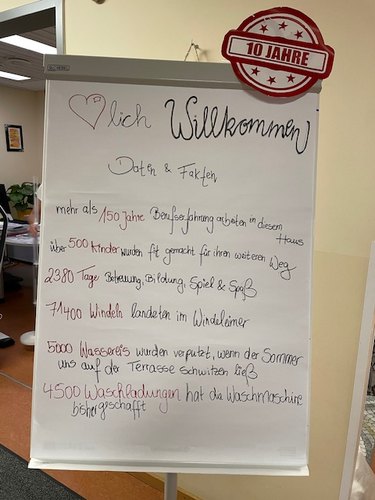 10 JAHRE
lich Willkommen
Daten & Fakten
mehr als 150 Jahre Berufserfahrung arbeiten in diesem
Haus
über 500 Kinder wurden fit gemacht für ihren weiteren Weg
2380 Tage Betreuung, Bildung, Spiel & Spaß
71400 Windeln landeten im Windeleimer
5000 Wassereis wurden verputzt, wenn der Sommer
uns auf der Terrasse schwitzen ließ
4500 Waschladungen hat die Waschmaschine
bisher geschafft